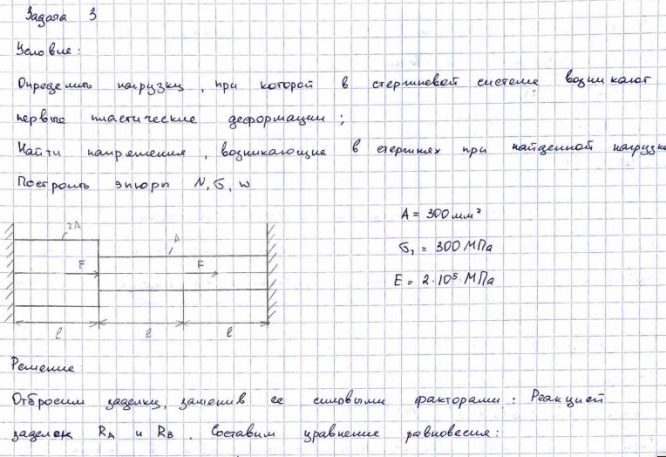 Задача 3
Условие:
Определить нагрузку, при которой в стержневой системе возникают
первые пластические деформации;
Найти напряжения, возникающие в стержнях при найденной нагрузке
Построить эпюры N, σ, w
2A
A
A = 300 мм²
F
F
σт = 300 МПа
E = 2·10⁵ МПа
ℓ
ℓ
ℓ
Решение
Отбросим заделки, заменив ее силовыми факторами: Реакцией
заделок R_A и R_B. Составим уравнение равновесия: